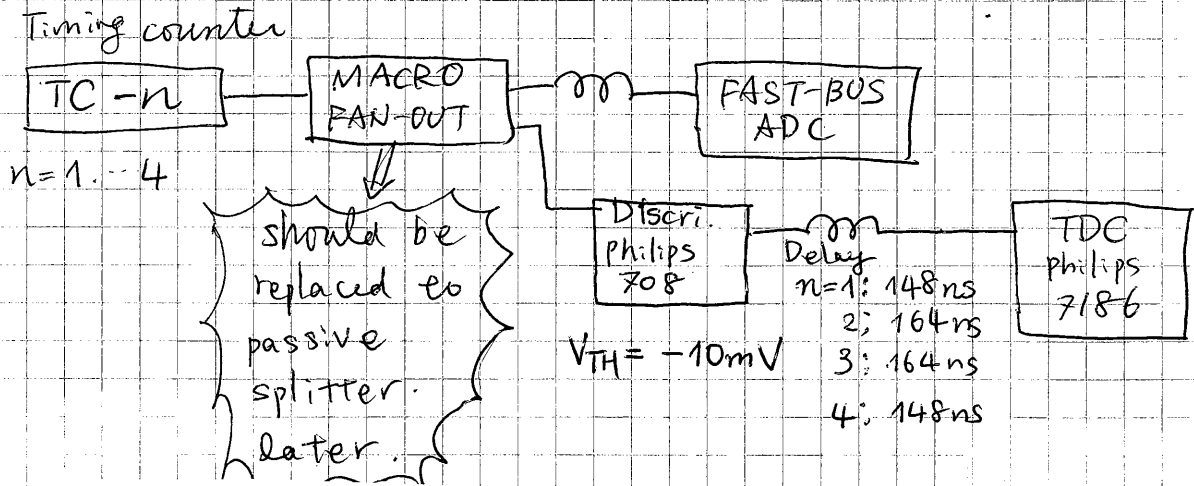 Timing counter
TC-n
MACRO
FAN-OUT
FAST-BUS
ADC
n=1....4
should be
replaced to
passive
splitter.
later.
Discri.
Philips
708
VTH = -10mV
Delay
n=1: 148ns
2; 164ns
3: 164ns
4; 148ns
TDC
philips
7186